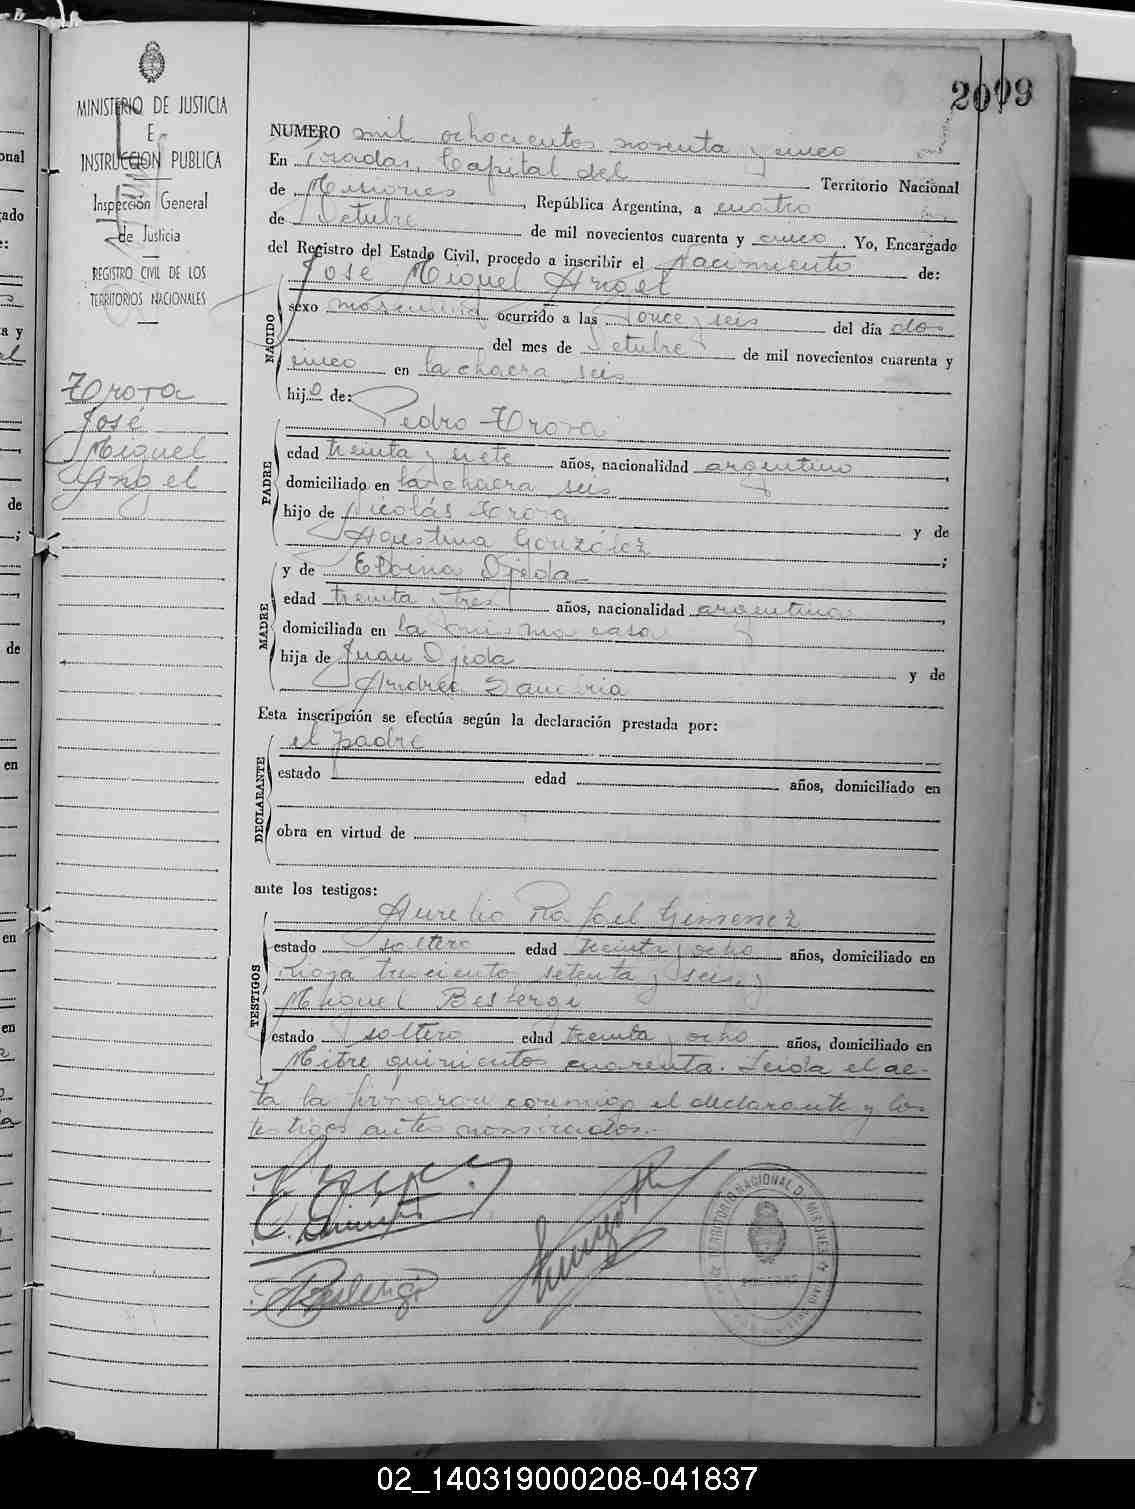 2099
MINISTERIO DE JUSTICIA
E
INSTRUCCION PUBLICA
Inspección General
de Justicia
REGISTRO CIVIL DE LOS
TERRITORIOS NACIONALES
José
Miguel
Angel
NUMERO mil ochocientos noventa y cinco
En Posadas, Capital del Territorio Nacional
de Misiones, República Argentina, a cuatro
de Octubre de mil novecientos cuarenta y cinco. Yo, Encargado
del Registro del Estado Civil, procedo a inscribir el Nacimiento de:
José Miguel Angel
NACIDO
sexo masculino ocurrido a las once y seis del día dos
del mes de Octubre de mil novecientos cuarenta y
cinco en la chacra seis
hijo de:
Pedro
PADRE
edad treinta y siete años, nacionalidad argentino
domiciliado en la chacra seis
hijo de Nicolás y de
Agustina González ;
MADRE
y de Ojeda
edad treinta y tres años, nacionalidad argentina
domiciliada en la misma casa
hija de Juan Ojeda y de
Andrea
Esta inscripción se efectúa según la declaración prestada por:
DECLARANTE
el padre
estado edad años, domiciliado en
obra en virtud de
ante los testigos:
TESTIGOS
Aurelio Rafael Gimenez
estado soltero edad treinta y ocho años, domiciliado en
Rioja trescientos setenta y seis, y
Miguel
estado soltero edad treinta y ocho años, domiciliado en
Mitre quinientos cuarenta. Leida el ac-
ta la firmaron conmigo el declarante y los
testigos antes nombrados.-
02_140319000208-041837